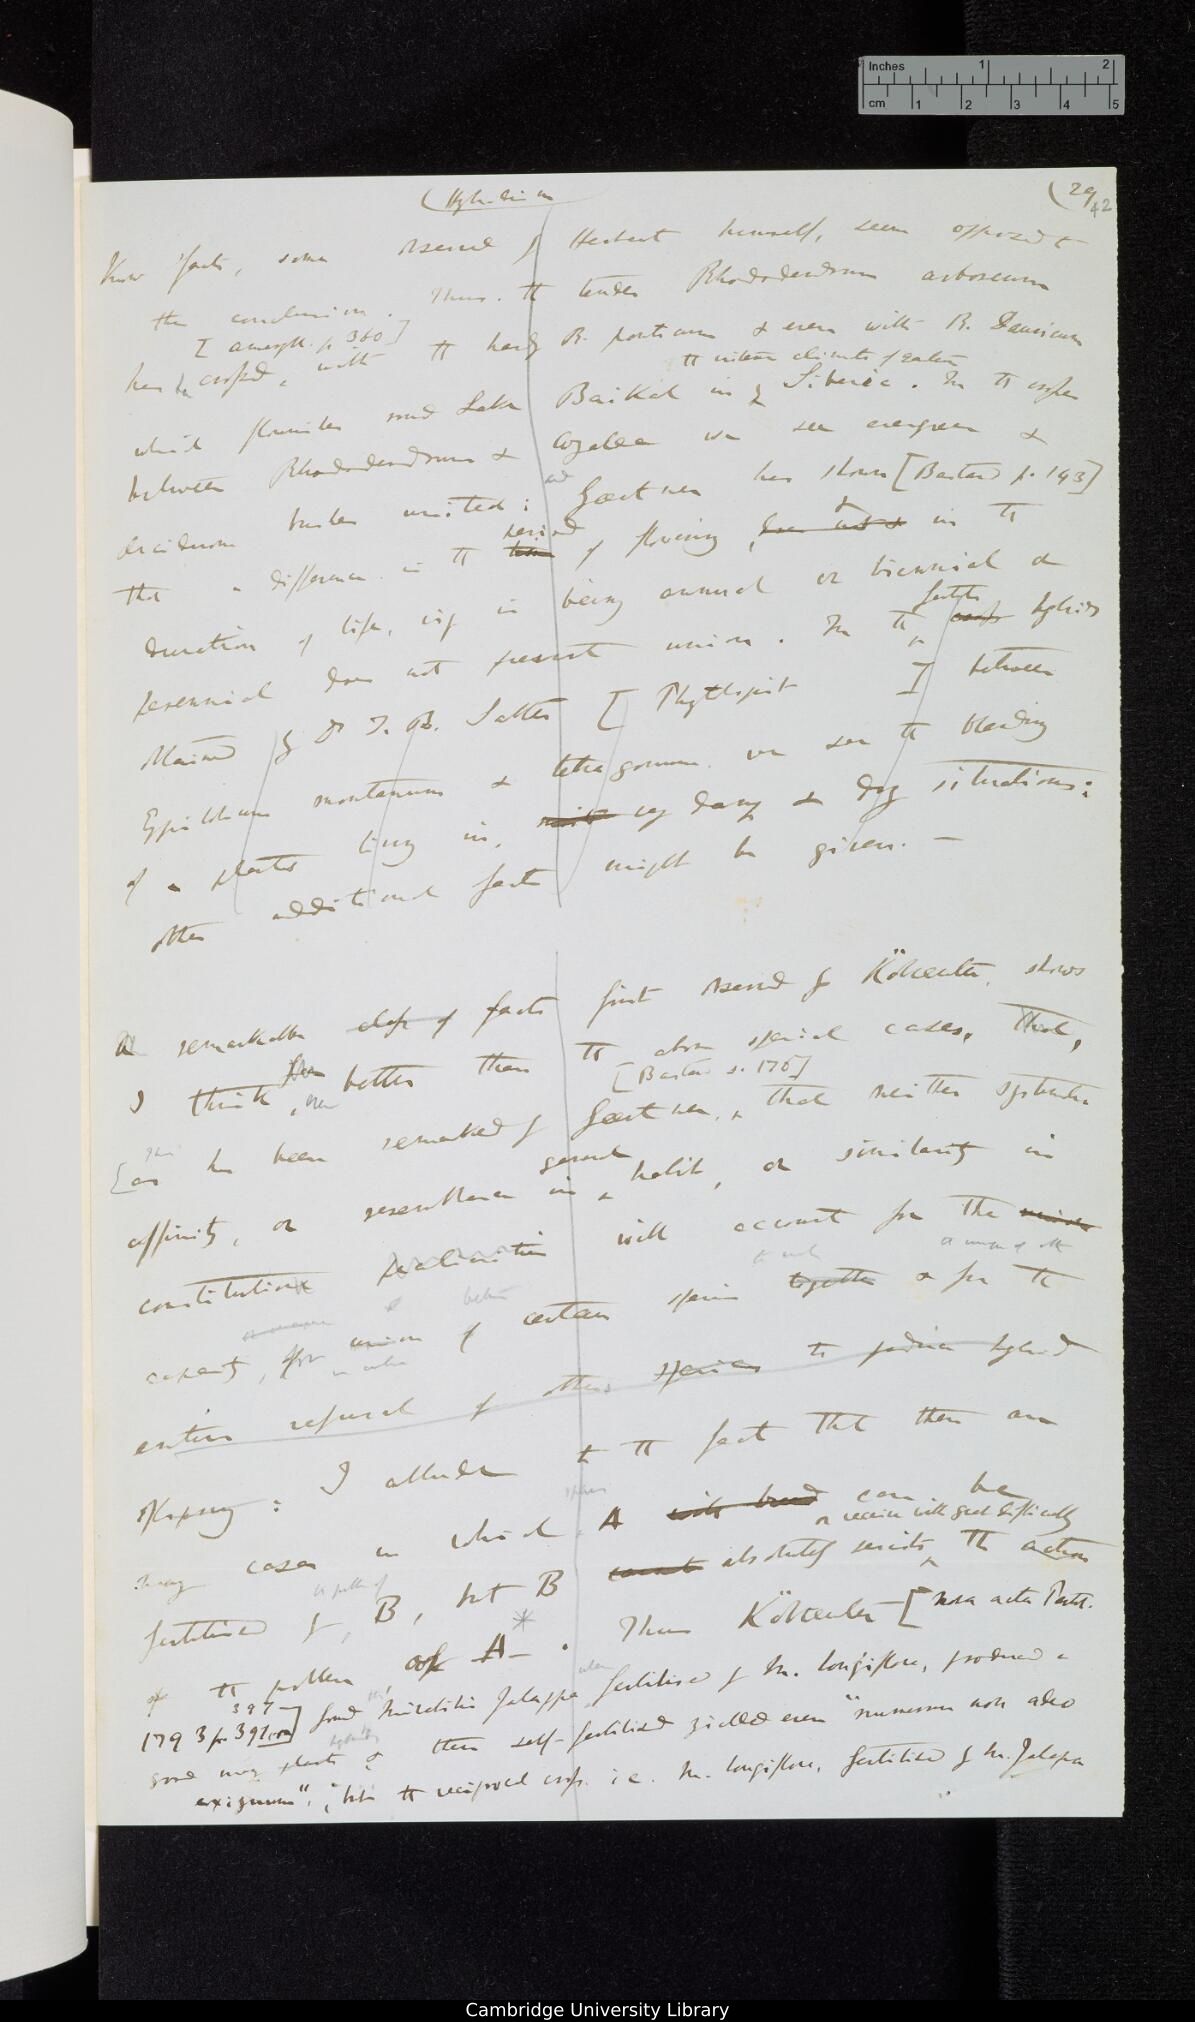 Inches 1 2
cm 1 2 3 4 5
(Hybridism
(29
42
Know facts, some observed by Herbert himself, seem opposed to
the conclusion. Thus the tender Rhododendrum arboreum
[Amaryll. p. 360]
has be crossed, with the hardy R. ponticum & even with R. Dauricum
the intense climate of eastern
which flourishes round Lake Baikal in Siberia. In the crosses
between Rhododendrum & Azalea we see evergreen &
deciduous bushes united; and Gærtner has shown [Bastard p. 143]
period
that a difference in the time of flowering, & in the
duration of life, viz in being annual or biennial or
fertile
perennial does not prevent union. In the cross hybrids
Mained by Dr J. B. Salter [Phytologist ] between
Epilobium montanum & tetragonum we see the blending
of a plants living in, very damp & dry situations:
other additional facts might be given. —
A remarkable class of facts first observed by Kölreuter, shows
I think, even better than the above special cases, that,
[Bastard s. 176]
[as has been remarked by Gærtner, that neither systematic
general
affinity, or resemblance in habit, or similarity in
constitution will account for the
to unite
capacity, for union of certain species together & for the
entire refusal of others species to produce hybrid
offspring: I allude to the fact that there are
species
many cases in which A will breed can be
or receives with great difficulty
fertilised by B, but B cannot absolutely resists the action
the pollen of
of the pollen of A. * Thus Kölreuter [Nova acta Petr.
397
1793 p. 391] found Mirabilis Jalappa, when fertilised by M. longiflora, produced a
good many plants & these self-fertilised yielded even "numerum non adeo
hybrids
exiguum"; but the reciprocal cross, i.e. M. longiflora, fertilised by M. Jalapa
Cambridge University Library